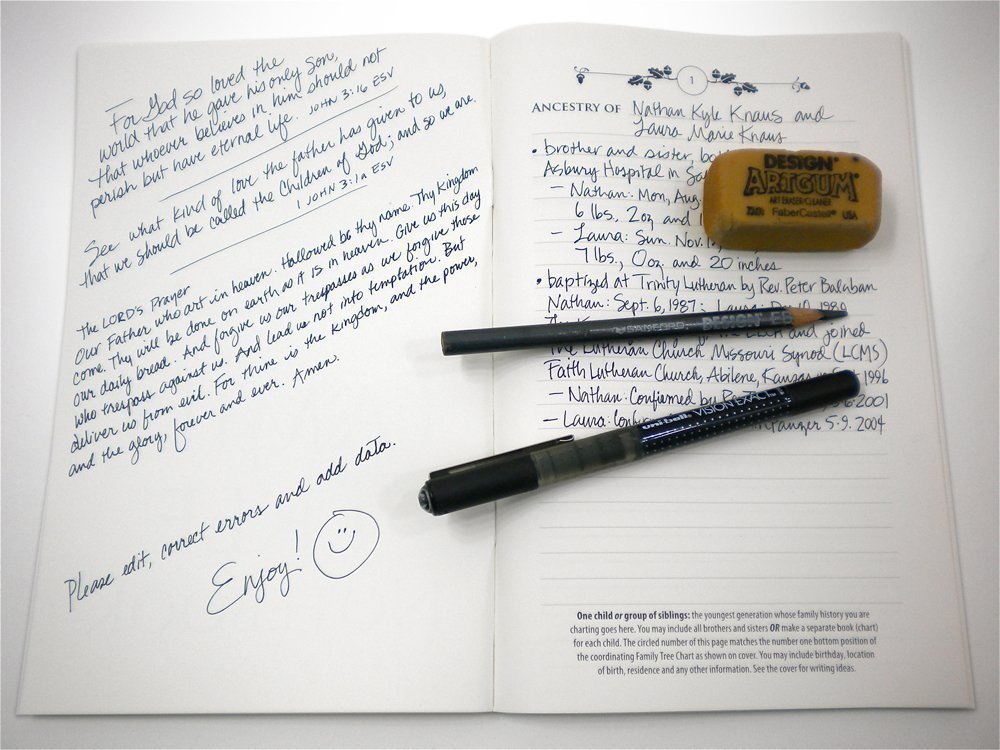 For God so loved the
world that he gave his only Son,
that whoever believes in him should not
perish but have eternal life. JOHN 3:16 ESV
See what kind of love the father has given to us,
that we should be called the children of God; and so we are.
1 JOHN 3:1a ESV
THE LORD'S Prayer
Our Father who art in heaven. Hallowed be thy name. Thy Kingdom
come. Thy will be done on earth as it is in heaven. Give us this day
our daily bread. And forgive us our trespasses as we forgive those
who trespass against us. And lead us not into temptation. But
deliver us from evil. For thine is the kingdom, and the power,
and the glory, forever and ever. Amen.
Please edit, correct errors and add data.
Enjoy!
1
ANCESTRY OF Nathan Kyle Knaus and
Laura Marie Knaus
• brother and sister,
Asbury Hospital in
– Nathan: Mon, Aug.
6 lbs., 2oz and
– Laura: Sun. Nov.
7 lbs., 0oz. and 20 inches
• baptized at Trinity Lutheran by Rev. Peter Balaban
Nathan: Sept. 6, 1987; Laura:
and joined
The Lutheran Church Missouri Synod (LCMS)
Faith Lutheran Church, Abilene, Kansas 1996
– Nathan: Confirmed by 2001
– Laura: 5.9.2004
DESIGN
ARTGUM
ART ERASER/CLEANER
FaberCastell USA
SANFORD DESIGN
uni-ball VISION EXACT
One child or group of siblings: the youngest generation whose family history you are
charting goes here. You may include all brothers and sisters OR make a separate book (chart)
for each child. The circled number of this page matches the number one bottom position of
the coordinating Family Tree Chart as shown on cover. You may include birthday, location
of birth, residence and any other information. See the cover for writing ideas.